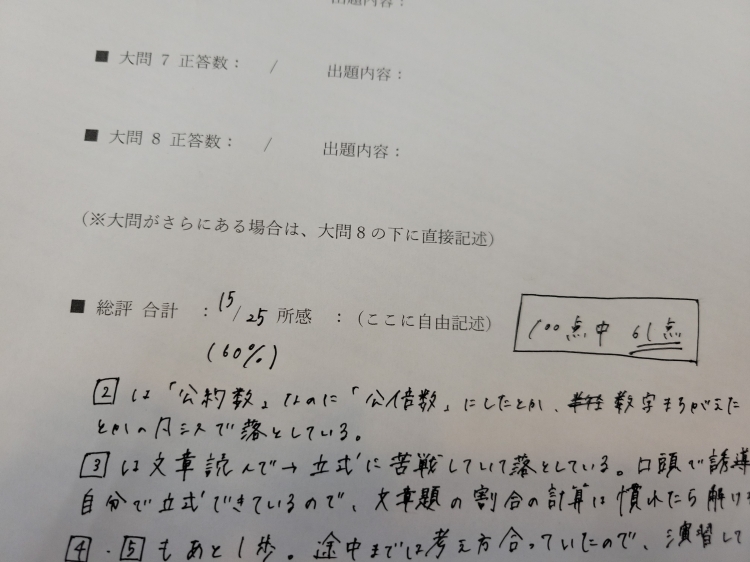 出題内容：
■ 大問 7 正答数： / 出題内容：
■ 大問 8 正答数： / 出題内容：
（※大問がさらにある場合は、大問8の下に直接記述）
■ 総評 合計 ：15/25 所感 ：（ここに自由記述）
100点中 61点
(60%)
2 は「公約数」なのに「公倍数」にしたとか、数字まちがえた
とかのミスで落としている。
3 は文章読んで→立式に苦戦していて落としている。口頭で誘導
自分で立式できているので、文章題の割合の計算は慣れたら解け
4・5 もあと1歩。途中までは考え方合っていたので、演習して